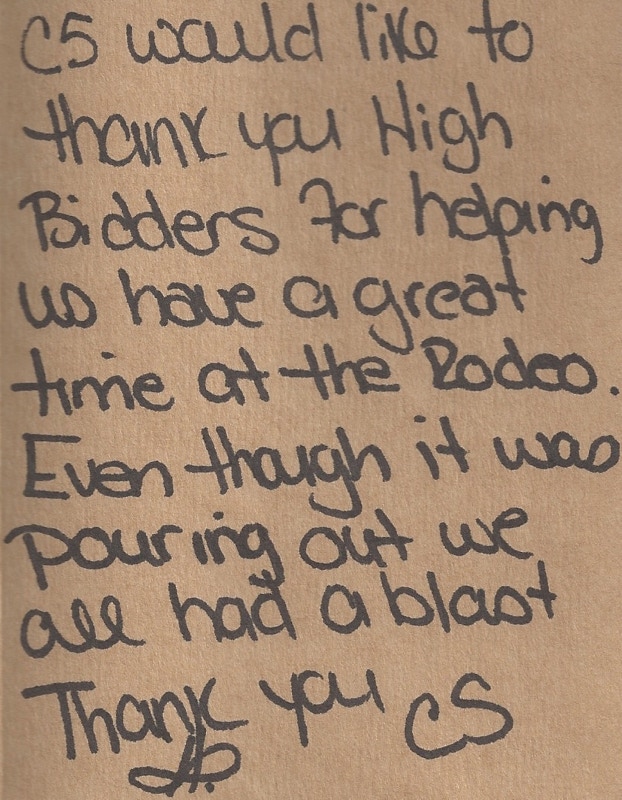 C5 would like to
thank you High
Bidders for helping
us have a great
time at the Rodeo.
Even though it was
pouring out we
all had a blast
Thank you C5